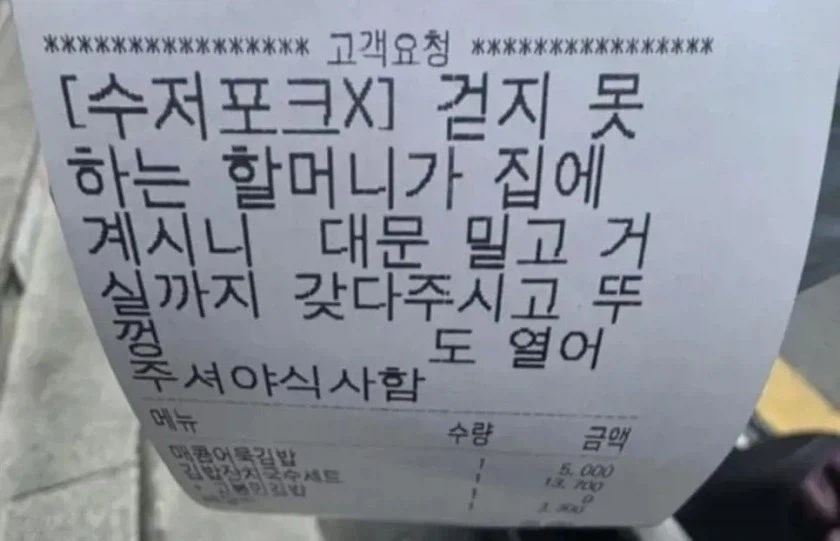 **************** 고객요청 ****************
[수저포크X] 걷지 못
하는 할머니가 집에
계시니 대문 밀고 거
실까지 갖다주시고 뚜
껑 도 열어
주셔야식사함
메뉴 수량 금액
매콤어묵김밥 1 5,000
김밥잔치국수세트 1 13,700
1 0
1